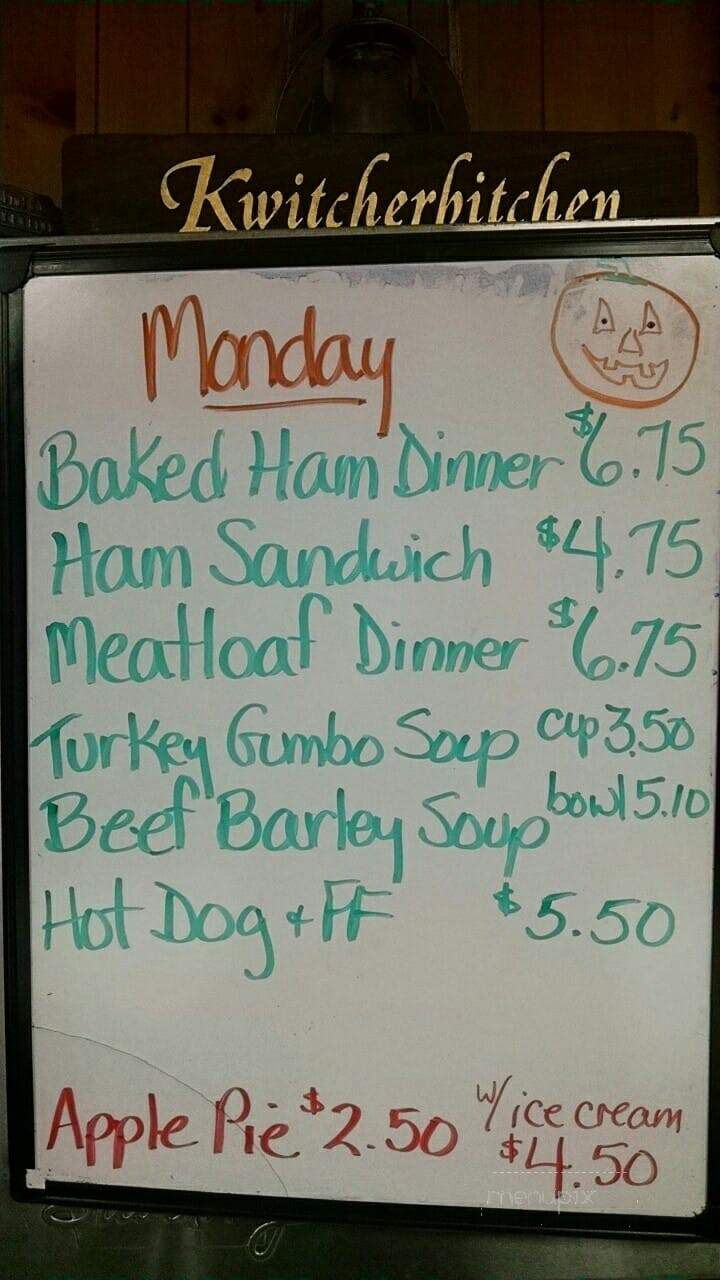 Kwitcherbitchen
Monday
Baked Ham Dinner $6.75
Ham Sandwich $4.75
Meatloaf Dinner $6.75
Turkey Gumbo Soup cup 3.50
Beef Barley Soup bowl 5.10
Hot Dog + FF $5.50
Apple Pie $2.50 w/ ice cream
$4.50
menupix